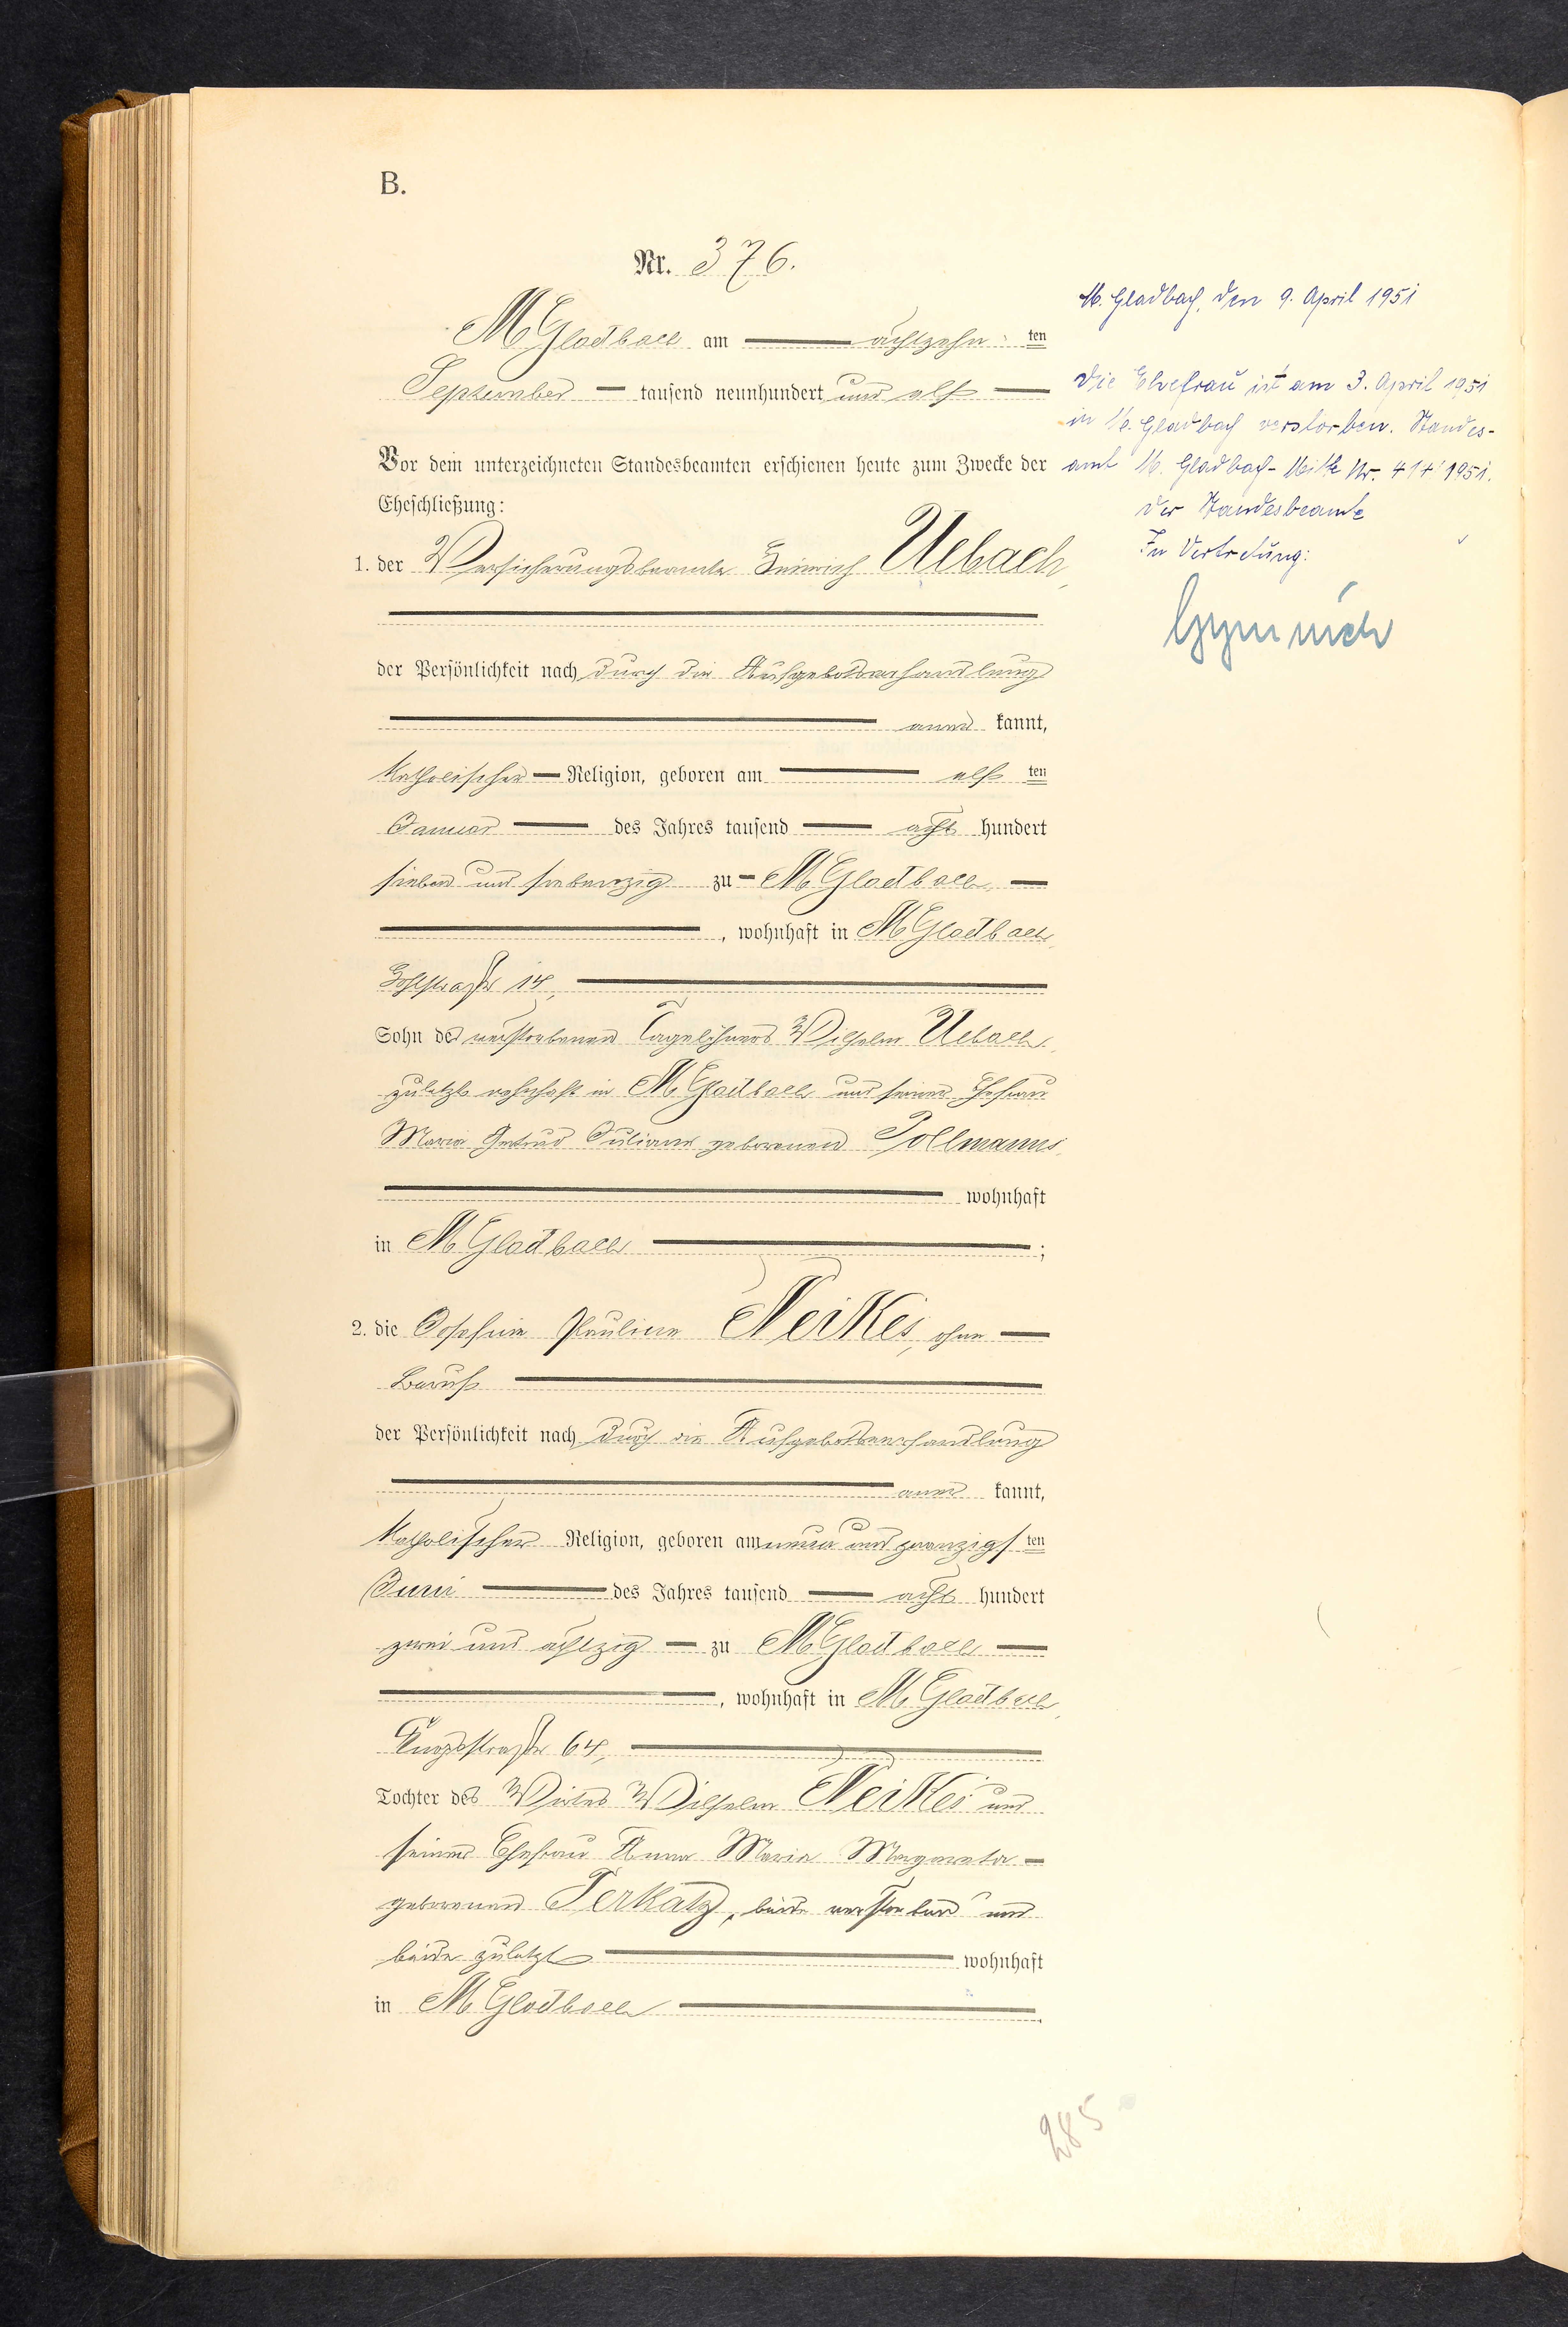 B.
Nr. 376.
M. Gladbach am achtzehn ten
September tausend neunhundert und elf
Vor dem unterzeichneten Standesbeamten erschienen heute zum Zwecke der
Eheschließung:
1. der Versicherungsbeamte Heinrich Uebach,
der Persönlichkeit nach durch die Aufgebotsverhandlung
aner kannt,
katholischer Religion, geboren am elf ten
Januar des Jahres tausend acht hundert
sieben und siebenzig zu M. Gladbach
, wohnhaft in M. Gladbach,
14,
Sohn des verstorbenen Tagelöhners Wilhelm Uebach,
zuletzt wohnhaft in M. Gladbach und seiner Ehefrau
Maria Gertrud Juliane geborenen Pollmanns,
wohnhaft
in M. Gladbach ;
2. die Josefine Pauline Neikes, ohne
Beruf
der Persönlichkeit nach durch die Aufgebotsverhandlung
aner kannt,
katholischer Religion, geboren am neun und zwanzigs ten
Juni des Jahres tausend acht hundert
zwei und achtzig zu M. Gladbach
, wohnhaft in M. Gladbach,
64,
Tochter des Wirtes Wilhelm Neikes und
seiner Ehefrau Anna Maria Margareta
geborenen Terkatz, beide verstorben und
beide zuletzt wohnhaft
in M. Gladbach .
M. Gladbach, den 9. April 1951
Die Ehefrau ist am 3. April 1951
in M. Gladbach verstorben. Standes-
amt M. Gladbach-Mitte Nr. 414/1951.
Der Standesbeamte
In Vertretung:
Gymnich
285